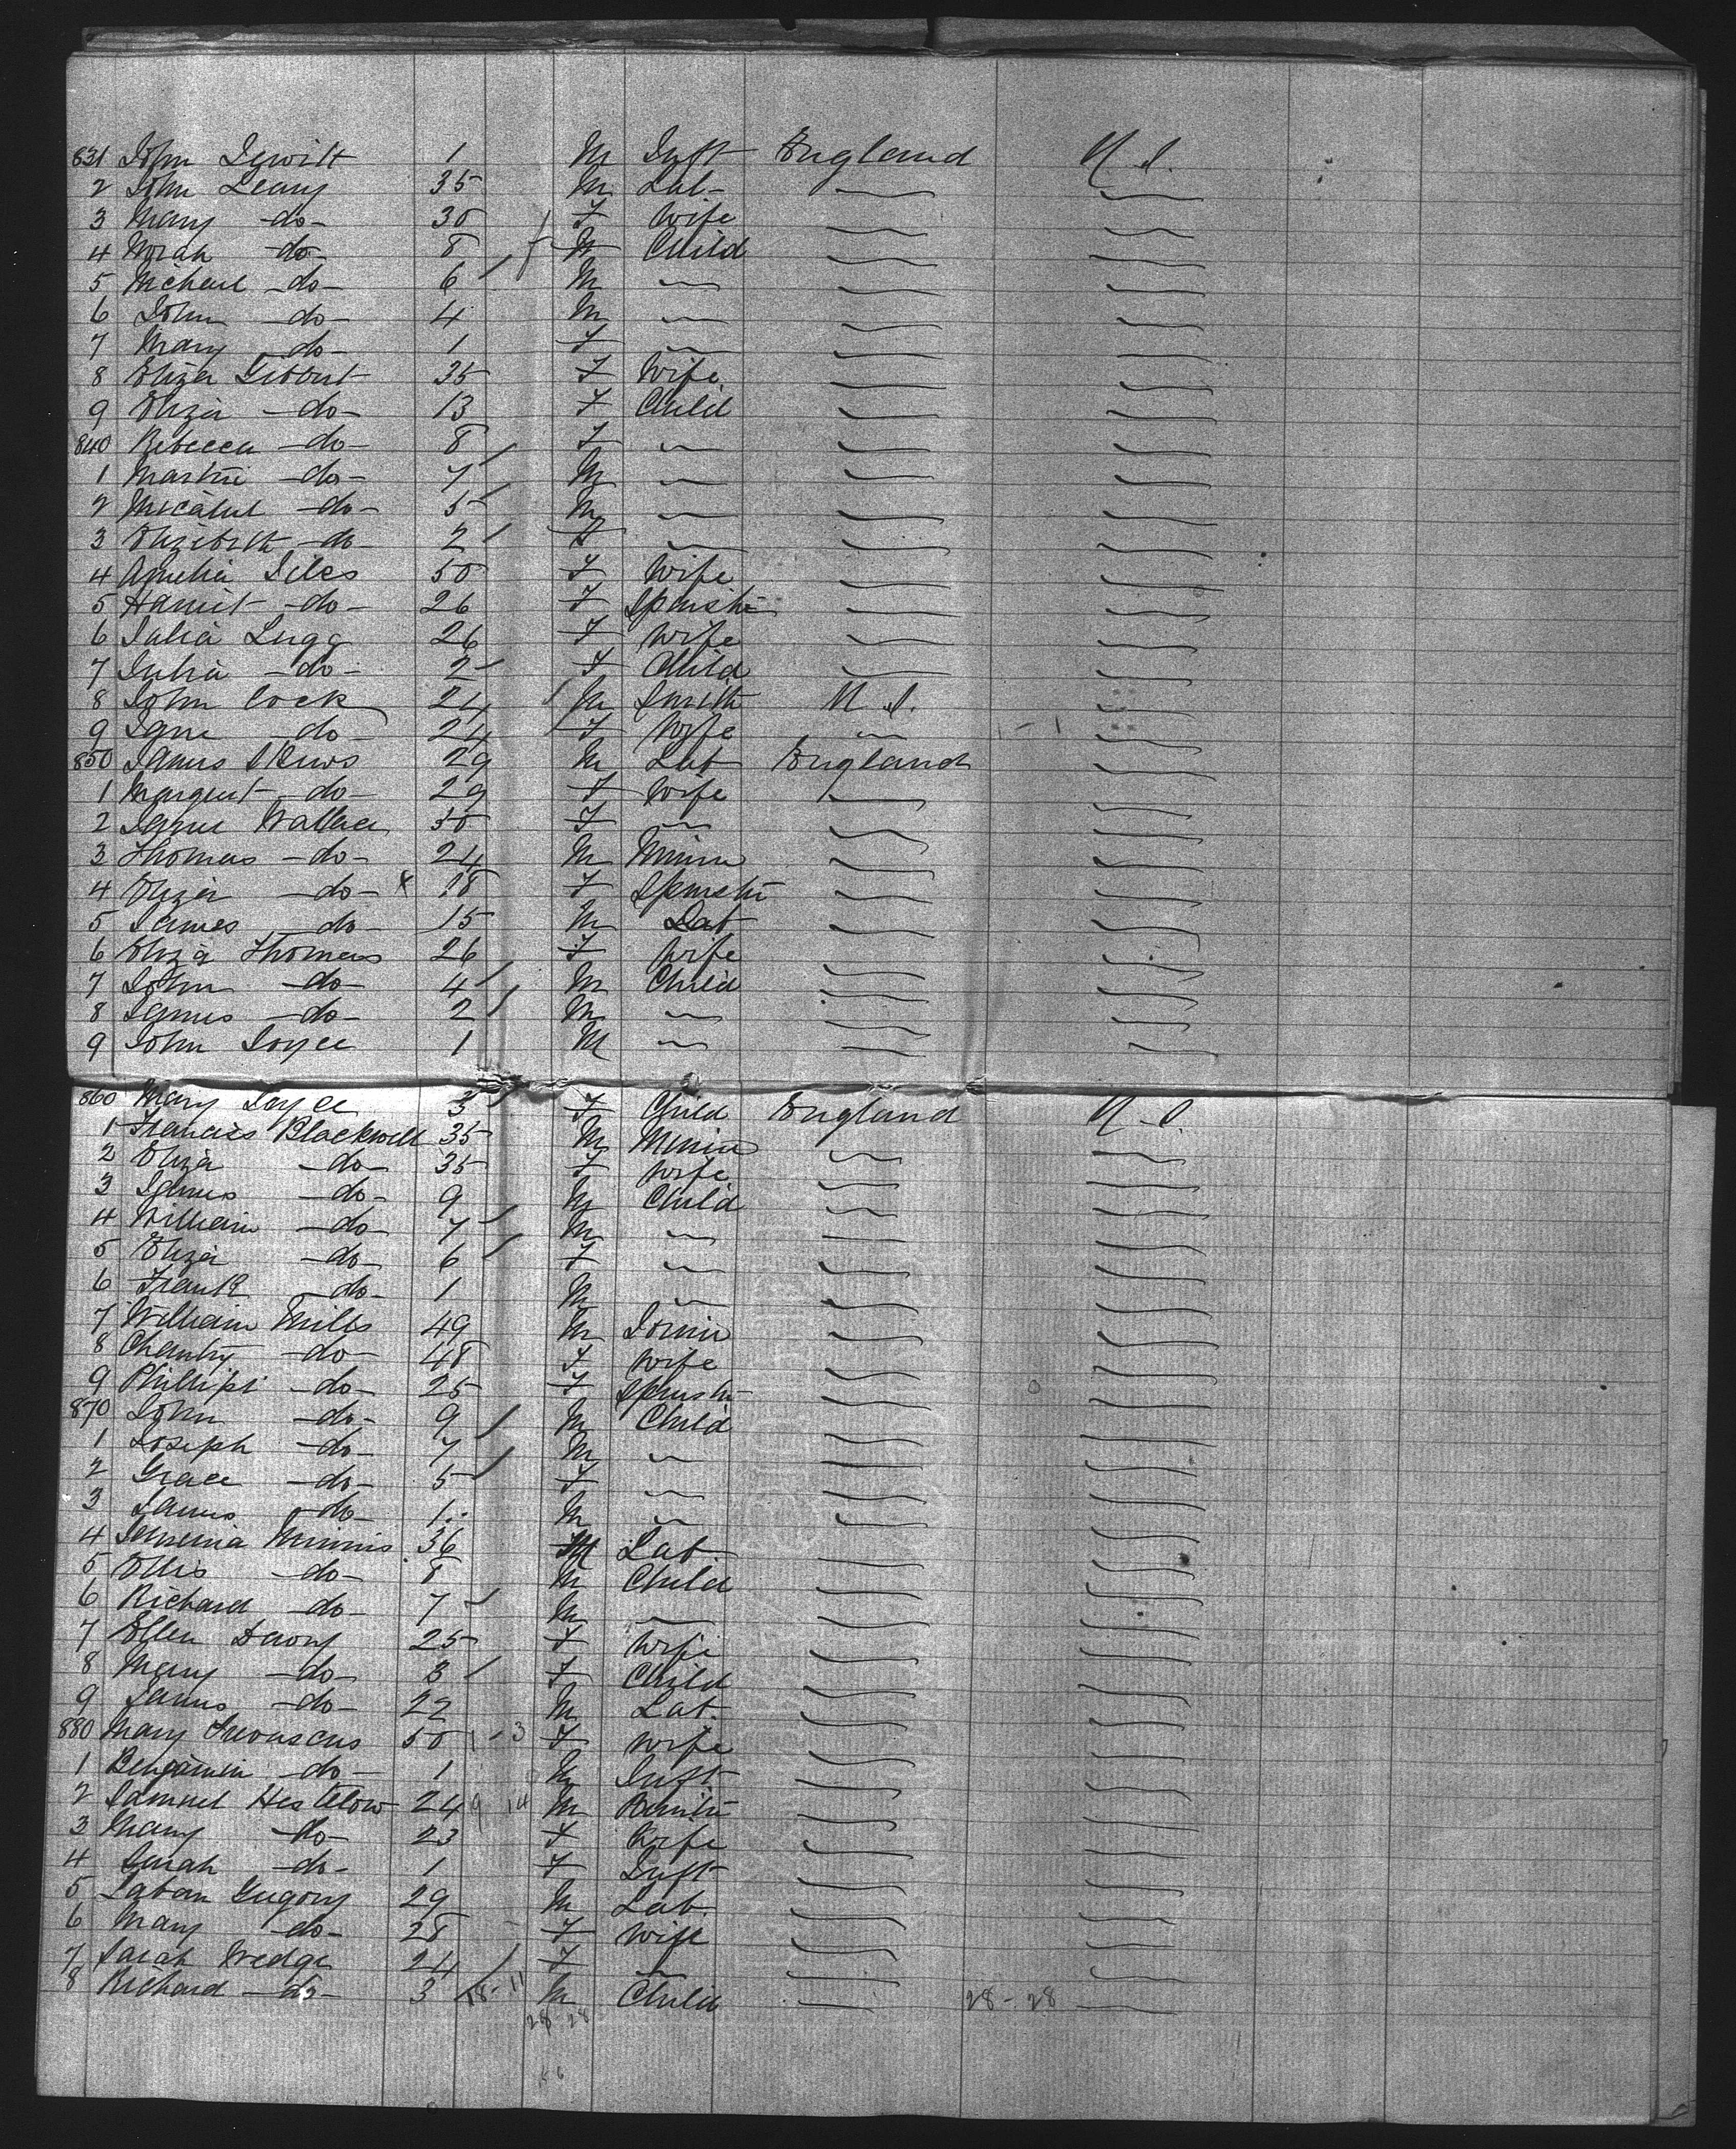 831 John Jewitt 1 M Inft England U.S.
2 John Leary 35 M Lab
3 Mary -do- 30 F Wife
4 Norah -do- 8 F Child
5 Micheal -do- 6 M
6 John -do- 4 M
7 Mary do- 1 F
8 Eliza 35 F Wife
9 Eliza -do- 13 F Child
840 Rebecca -do- 8 F
1 Martin -do- 7 M
2 -do- 5 M
3 Elizabeth -do- 2 F
4 Amelia Iles 50 F Wife
5 Harriet -do- 26 F Spinstr
6 Julia Lugg 26 F Wife
7 Julia -do- 2 F Child
8 John Cock 24 M Smith U.S.
9 Jane do- 24 F Wife
850 James Skews 29 M Lab England
1 Margeret -do- 29 F Wife
2 Jane Wallace 50 F
3 Thomas -do- 24 M Miner
4 Eliza -do- x 18 F Spinstr
5 James do- 15 M Lab
6 Eliza Thomas 26 F Wife
7 John -do- 4 M Child
8 James -do- 2 M
9 John Joyce 1 M
860 Mary Joyce 3 F Child England U.S.
1 Francis Blackwell 35 M Miner
2 Eliza -do- 35 F Wife
3 James -do- 9 M Child
4 William -do- 7 M
5 Eliza -do- 6 F
6 Frank do- 1 M
7 William Mills 49 M Joiner
8 Charity -do- 48 F Wife
9 Phillipi -do- 25 F Spinstr
870 John -do- 9 M Child
1 Joseph -do- 7 M
2 Grace -do- 5 F
3 James -do- 1 M
4 36 M Lab
5 Ellis -do- 8 M Child
6 Richard -do- 7 M
7 Ellen Davy 25 F Wife
8 Mary -do- 3 F Child
9 James -do- 22 M Lab.
880 Mary 50 1-3 F Wife
1 Benjamin -do- 1 M Inft
2 Samuel Heslelow 24 9 14 M
3 Mary -do- 23 F Wife
4 Sarah -do- 1 F Inft
5 Laban Gregory 29 M Lab.
6 Mary do- 28 F Wife
7 Sarah Wedge 24 F
8 Richard -do- 3 18-11 M Child 28-28
28 28